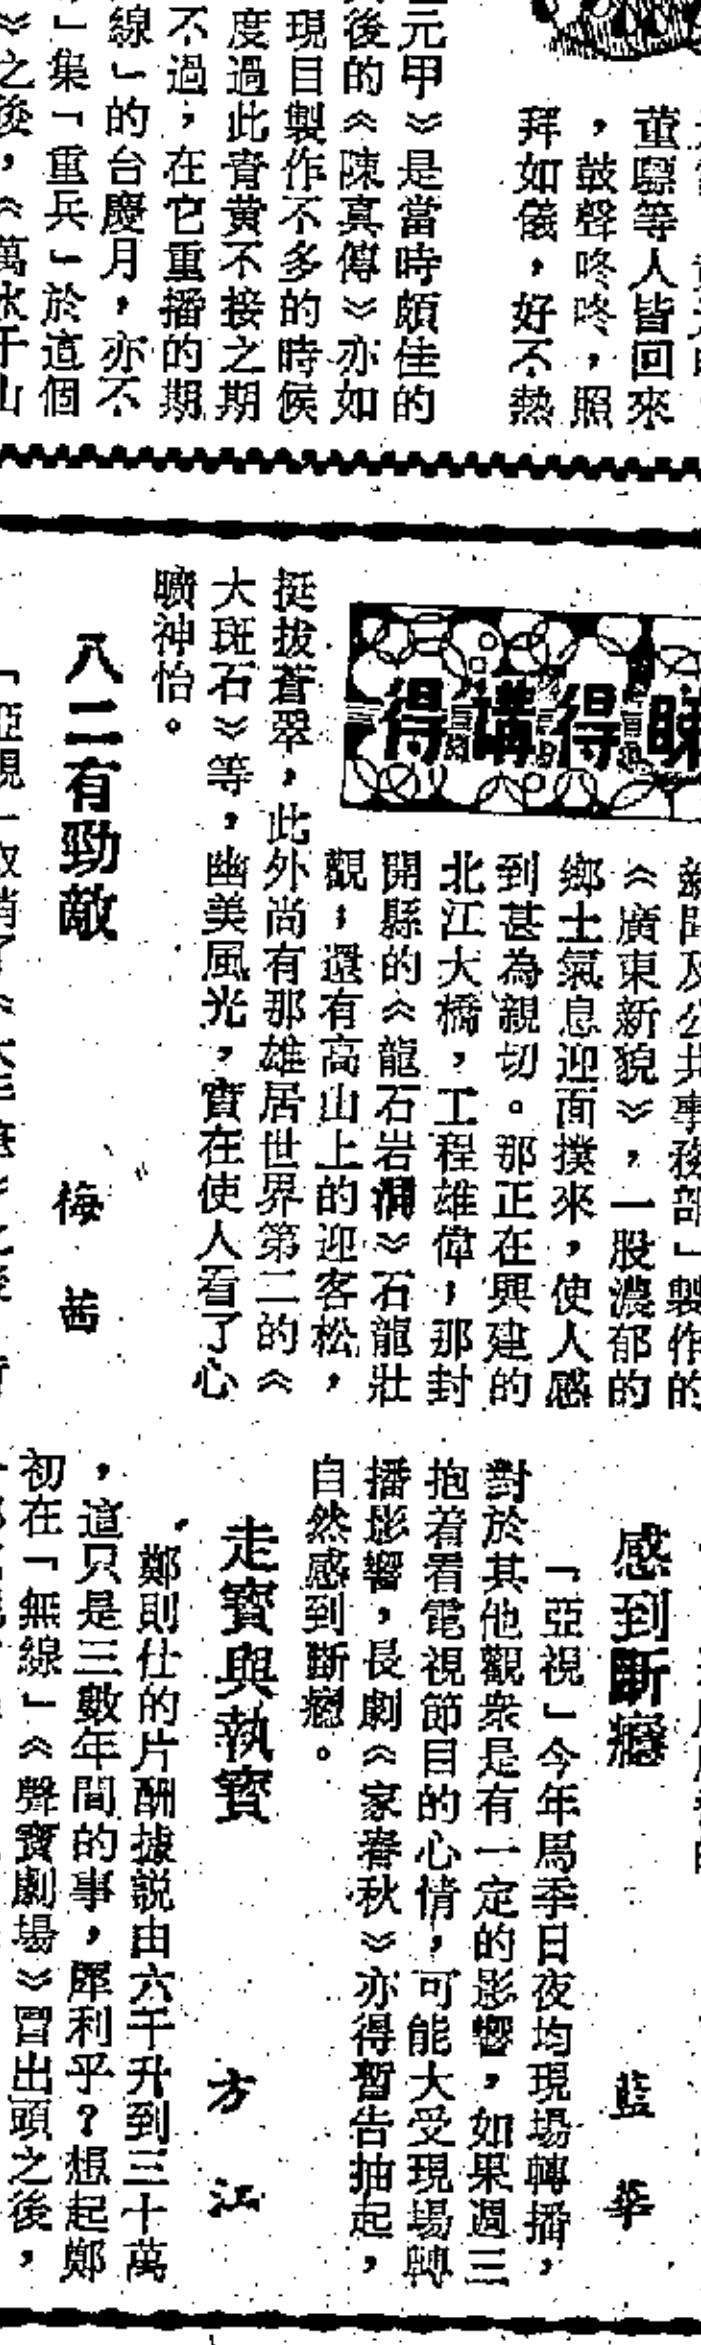 董驃等人皆回來
，鼓聲咚咚，照
拜如儀，好不熱
元甲》是當時頗佳的
後的《陳真傳》亦如
現目製作不多的時候
度過此青黃不接之期
不過，在它重播的期
線」的台慶月，亦不
」集「重兵」於這個
》之後，《萬水千山
睇得講得
新聞及公共事務部」製作的
《廣東新貌》，一股濃郁的
鄉土氣息迎面撲來，使人感
到甚為親切。那正在興建的
北江大橋，工程雄偉，那封
開縣的《龍石岩洞》石龍壯
觀，還有高山上的迎客松，
挺拔蒼翠，此外尚有那雄居世界第二的《
大斑石》等，幽美風光，實在使人看了心
曠神怡。
八二有勁敵
梅茜
感到斷癮
藍華
「亞視」今年馬季日夜均現場轉播，
對於其他觀衆是有一定的影響，如果週三
抱着看電視節目的心情，可能大受現場轉
播影響，長劇《家春秋》亦得暫告抽起，
自然感到斷癮。
走寶與執寶
方江
鄭則仕的片酬據説由六千升到三十萬
，這只是三數年間的事，犀利乎？想起鄭
初在「無線」《聲寶劇場》冒出頭之後，